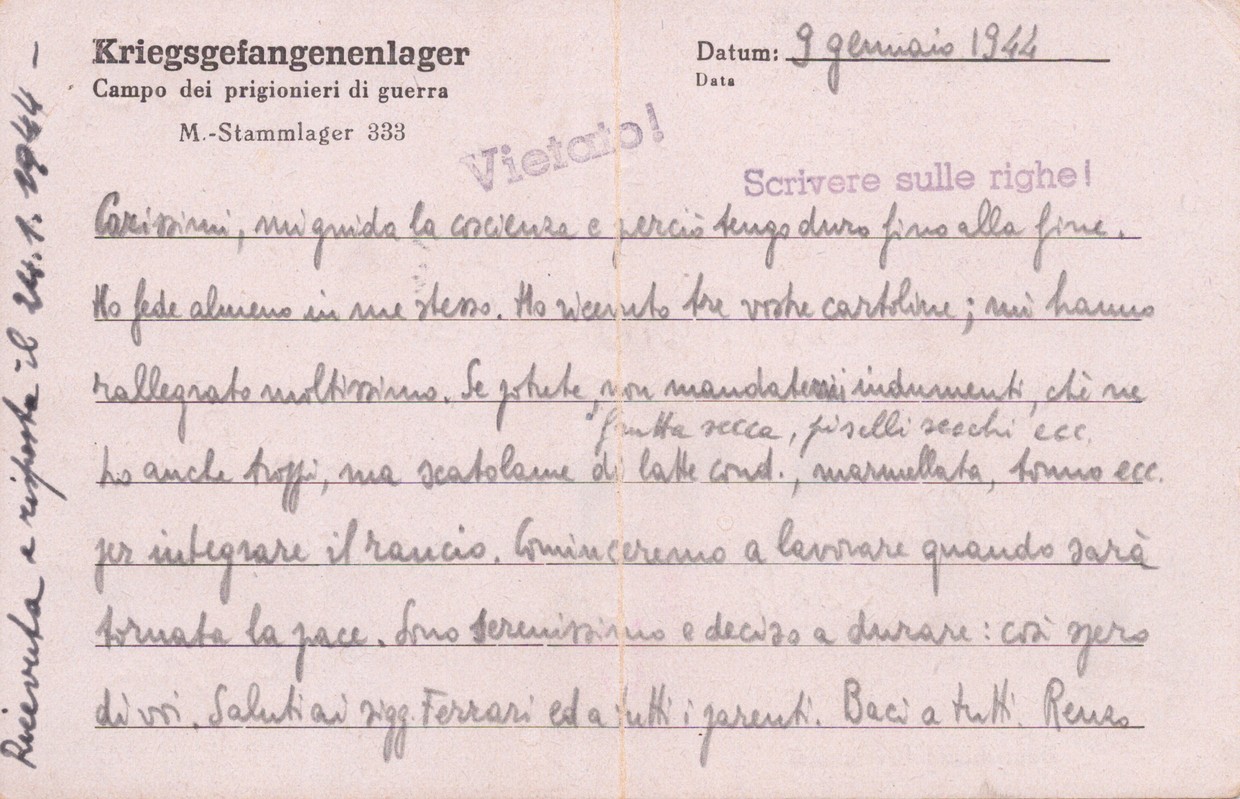 Kriegsgefangenenlager
Campo dei prigionieri di guerra
M.-Stammlager 333
Datum: 9 gennaio 1944
Data
Vietato!
Scrivere sulle righe!
Carissimi, mi guida la coscienza e perciò tengo duro fino alla fine.
Ho fede almeno in me stesso. Ho ricevuto tre vostre cartoline; mi hanno
rallegrato moltissimo. Se potete, non mandatemi indumenti, chè ne
frutta secca, piselli secchi ecc.
ho anche troppi, ma scatolame di latte cond., marmellata, tonno ecc.
per integrare il rancio. Cominceremo a lavorare quando sarà
tornata la pace. Sono serenissimo e deciso a durare: così spero
di voi. Saluti ai sigg. Ferrari ed a tutti i parenti. Baci a tutti. Renzo
Ricevuta e risposta il 24.1.1944 –